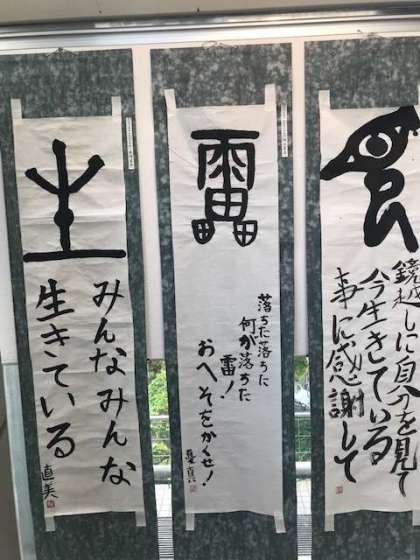 生
みんなみんな
生きている
直美
雷
落ちた落ちた
何が落ちた
雷!
おへそをかくせ!
鏡越しに自分を見て
今生きている
事に感謝して